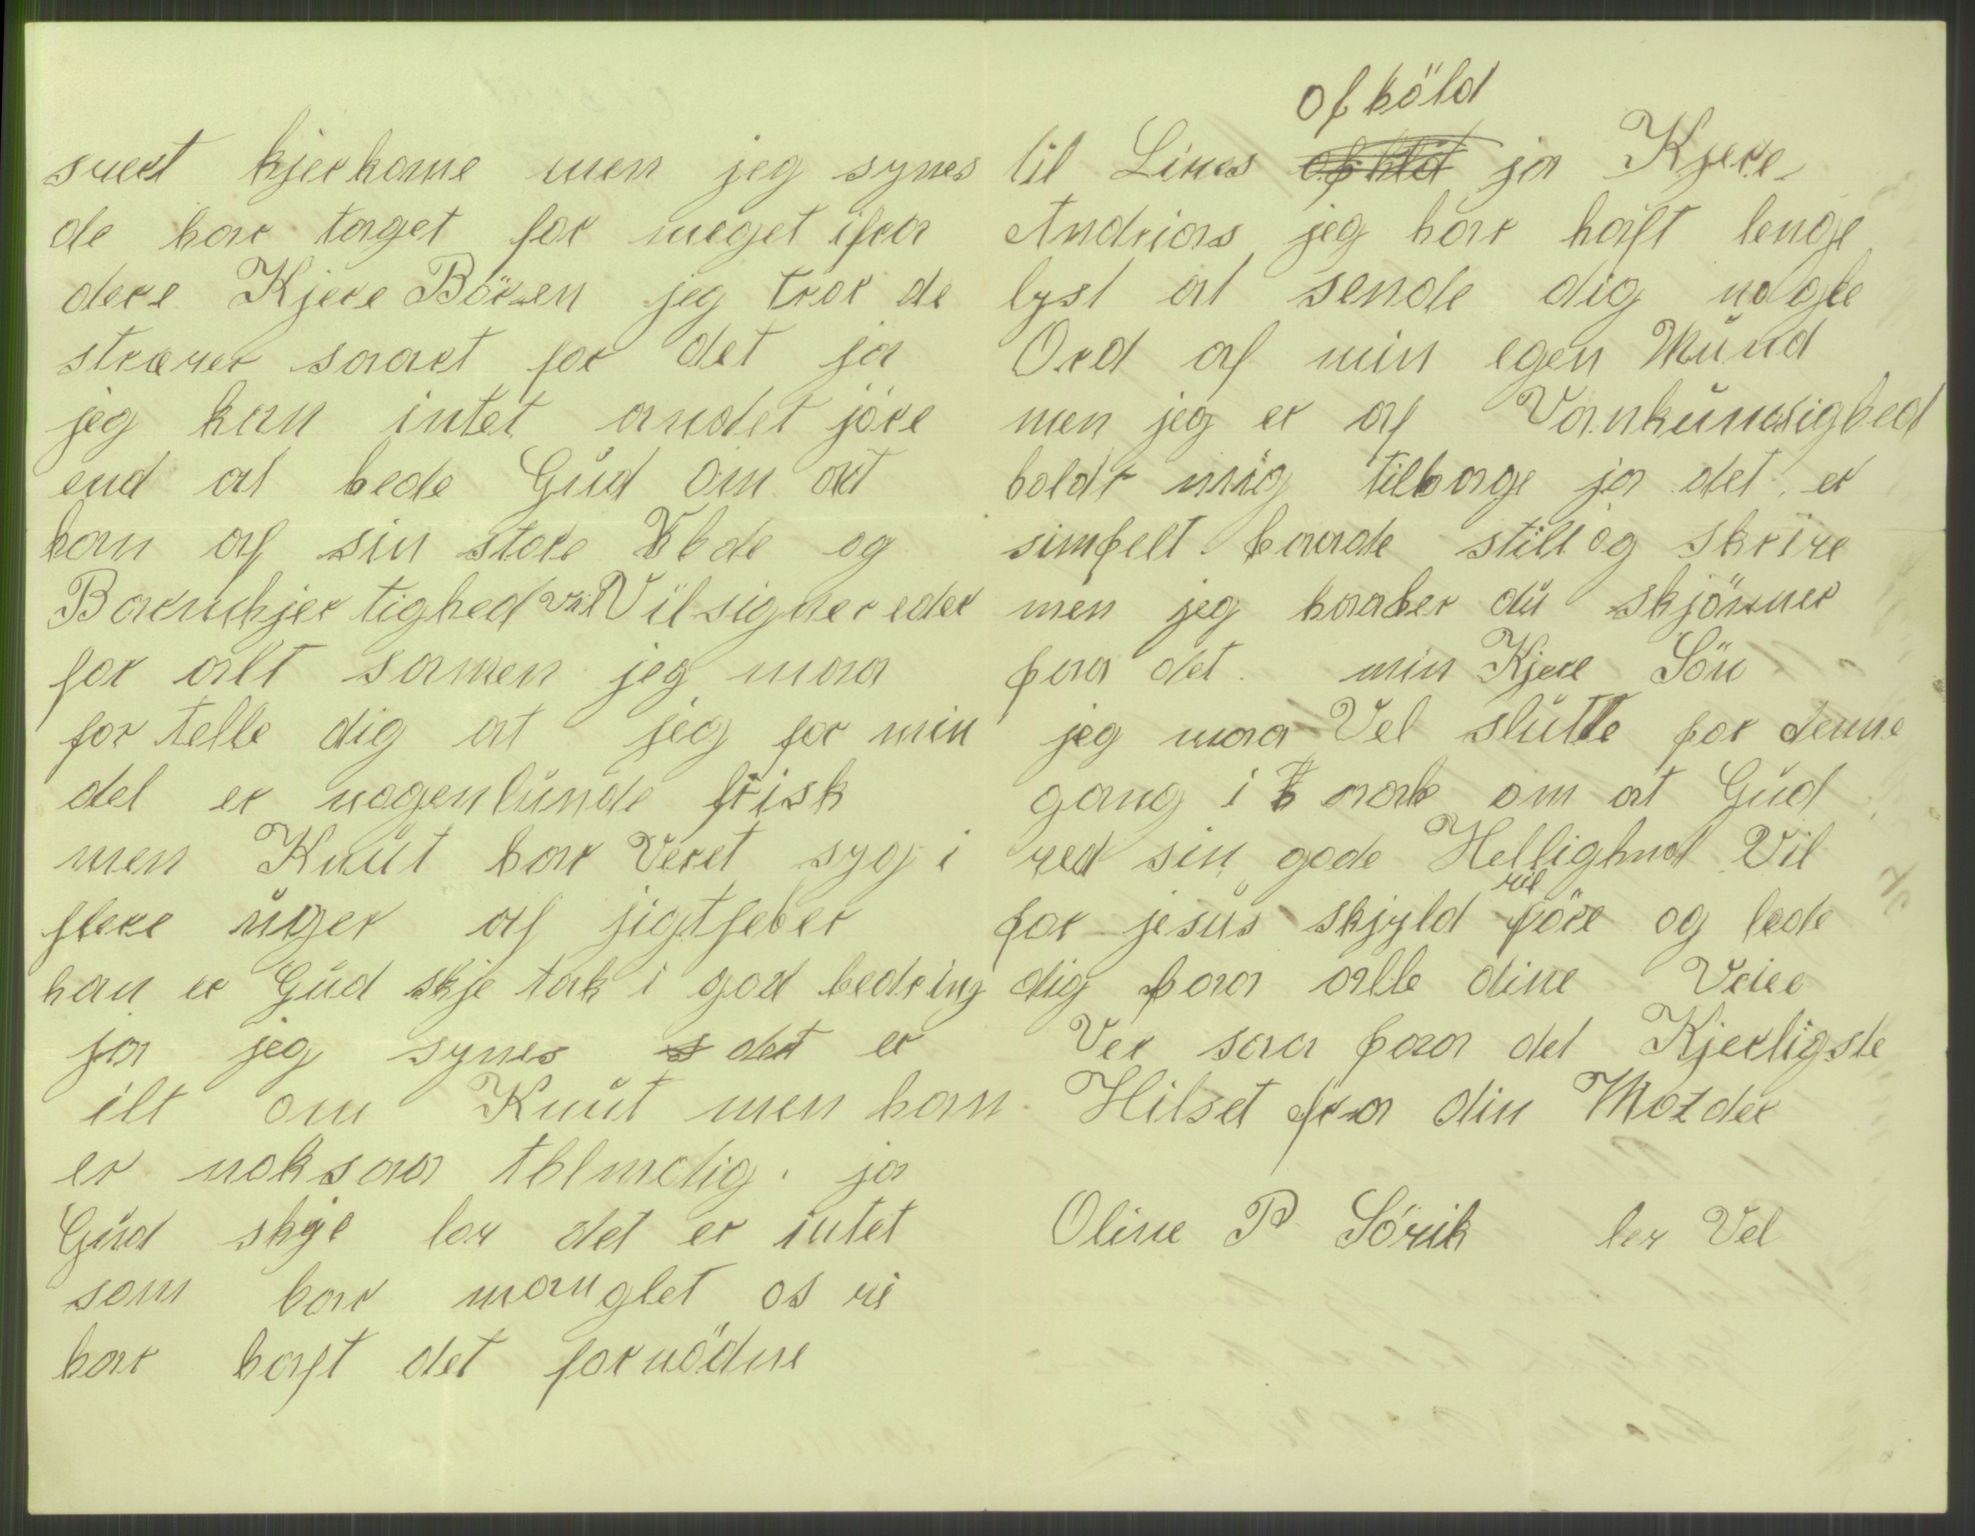 svert kjerkome men jeg synes
de har taget for meget ifra
dere Kjere Bören jeg tror de
strever saart for det ja
jeg kan intet andet jöre
end at bede Gud om at
han af sin store bde og
Barmhjertighed vil Vilsigner eder
for alt samen jeg maa
fortelle dig at jeg for min
del er nogenlunde frisk
men Knut har Veret syg i
flere uger af jigtfeber
han er Gud skje tak i god bedring
ja jeg synes det er
ilt om Knut men han
er noksaa tolmdig. ja
Gud skje lov det er intet
som har manglet os vi
har haft det fornödne
ofhöld
til Lives ja Kjere
Andrias jeg har haft lenge
lyst at sende dig nogle
Ord af min egen Mund
men jeg er af Vankundsighed
holdt mig tilbage ja det er
simpelt baade stil og skrive
men jeg haaber du skjönner
paa det. min Kjere Sön
jeg maa Vel slutte for denne
gang i haab om at Gud
ved sin gode Hellighnd Vil
for jesus skjyld vil före og lede
dig paa alle dine Veiee
Ver saa paa det Kjerligste
Hilset fra din Mozder
Oline P Sörvik lev Vel